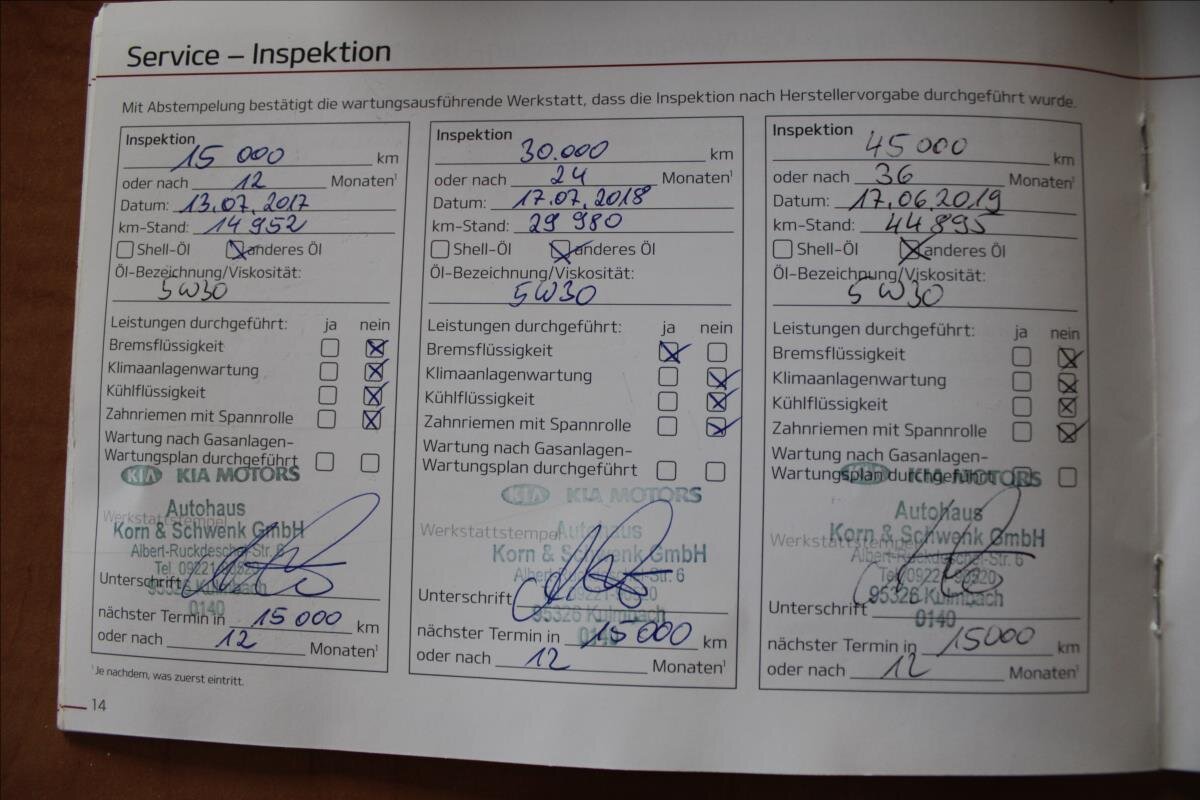 Service – Inspektion
Mit Abstempelung bestätigt die wartungsausführende Werkstatt, dass die Inspektion nach Herstellervorgabe durchgeführt wurde.
Inspektion
15 000 km
oder nach 12 Monaten¹
Datum: 13.07.2017
km-Stand: 14952
Shell-Öl anderes Öl
Öl-Bezeichnung/Viskosität:
5W30
Leistungen durchgeführt: ja nein
Bremsflüssigkeit
Klimaanlagenwartung
Kühlflüssigkeit
Zahnriemen mit Spannrolle
Wartung nach Gasanlagen-
Wartungsplan durchgeführt
KIA KIA MOTORS
Autohaus
Werkstattstempel
Korn & Schwenk GmbH
Albert-Ruckdeschel-Str. 6
Tel. 09221-90520
95326 Kulmbach
Unterschrift
0140
nächster Termin in 15 000 km
oder nach 12 Monaten¹
Inspektion
30.000 km
oder nach 24 Monaten¹
Datum: 17.07.2018
km-Stand: 29 980
Shell-Öl anderes Öl
Öl-Bezeichnung/Viskosität:
5W30
Leistungen durchgeführt: ja nein
Bremsflüssigkeit
Klimaanlagenwartung
Kühlflüssigkeit
Zahnriemen mit Spannrolle
Wartung nach Gasanlagen-
Wartungsplan durchgeführt
KIA KIA MOTORS
Werkstattstempel Autohaus
Korn & Schwenk GmbH
Albert-Ruckdeschel-Str. 6
09221-90520
Unterschrift
95326 Kulmbach
0140
nächster Termin in 15000 km
oder nach 12 Monaten¹
Inspektion
45000 km
oder nach 36 Monaten¹
Datum: 17.06.2019
km-Stand: 44895
Shell-Öl anderes Öl
Öl-Bezeichnung/Viskosität:
5W30
Leistungen durchgeführt: ja nein
Bremsflüssigkeit
Klimaanlagenwartung
Kühlflüssigkeit
Zahnriemen mit Spannrolle
Wartung nach Gasanlagen-
Wartungsplan durchgeführt
KIA KIA MOTORS
Autohaus
Werkstattstempel
Korn & Schwenk GmbH
Albert-Ruckdeschel-Str. 6
Tel. 09221-90520
95326 Kulmbach
Unterschrift
0140
nächster Termin in 15000 km
oder nach 12 Monaten¹
¹Je nachdem, was zuerst eintritt.
14